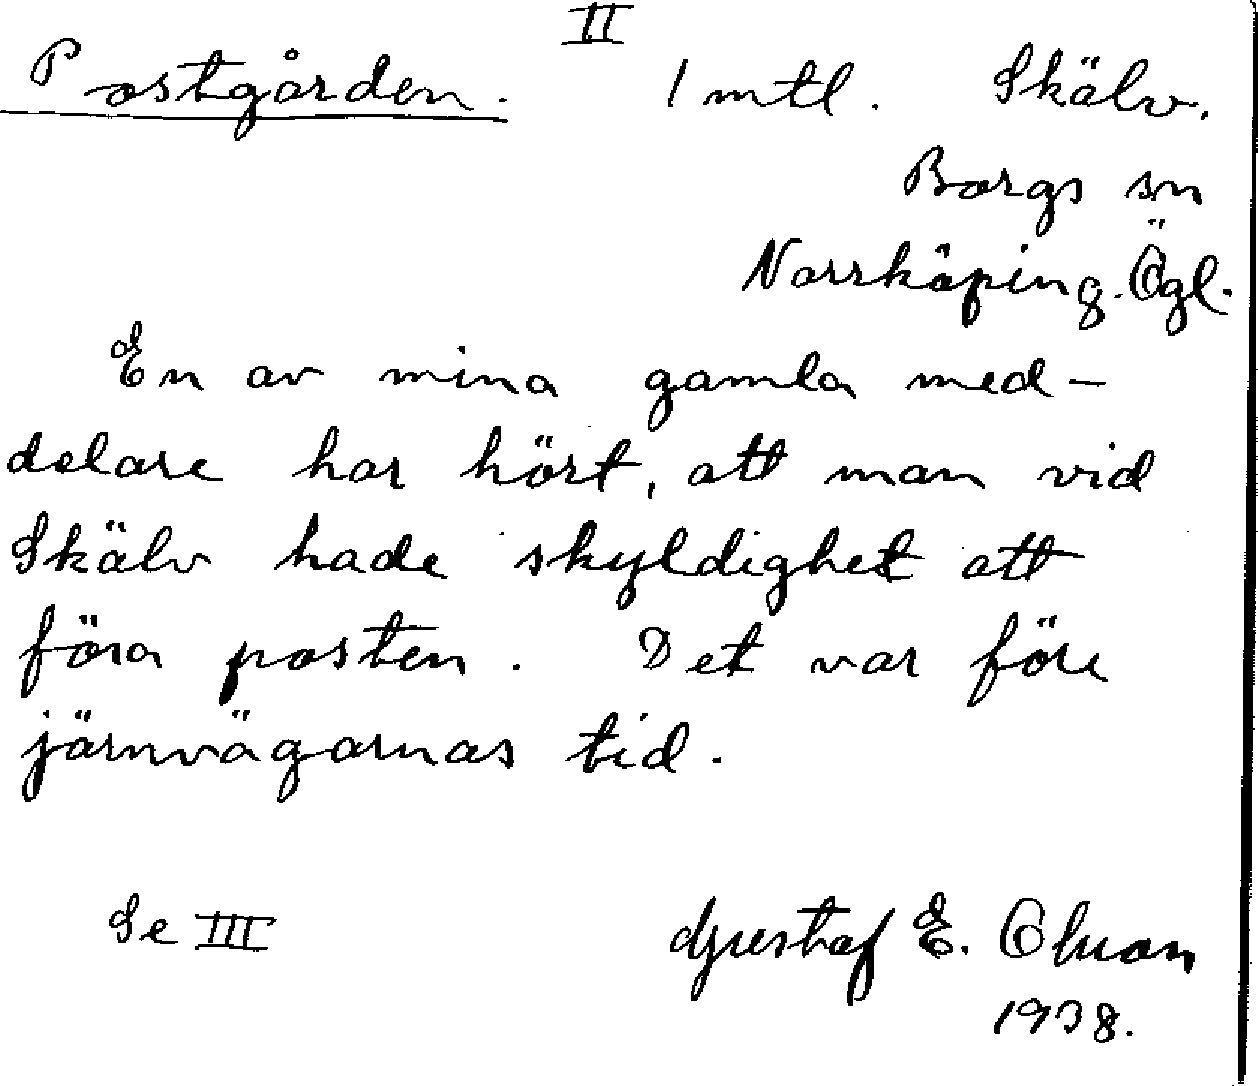 II
Postgården. 1 mtl. Skälv.
Borgs sn
Norrköping. Ögl.
En av mina gamla med-
delare har hört, att man vid
Skälv hade skyldighet att
föra posten. Det var före
järnvägarnas tid.
Se III Gustaf E. Olsson
1938.